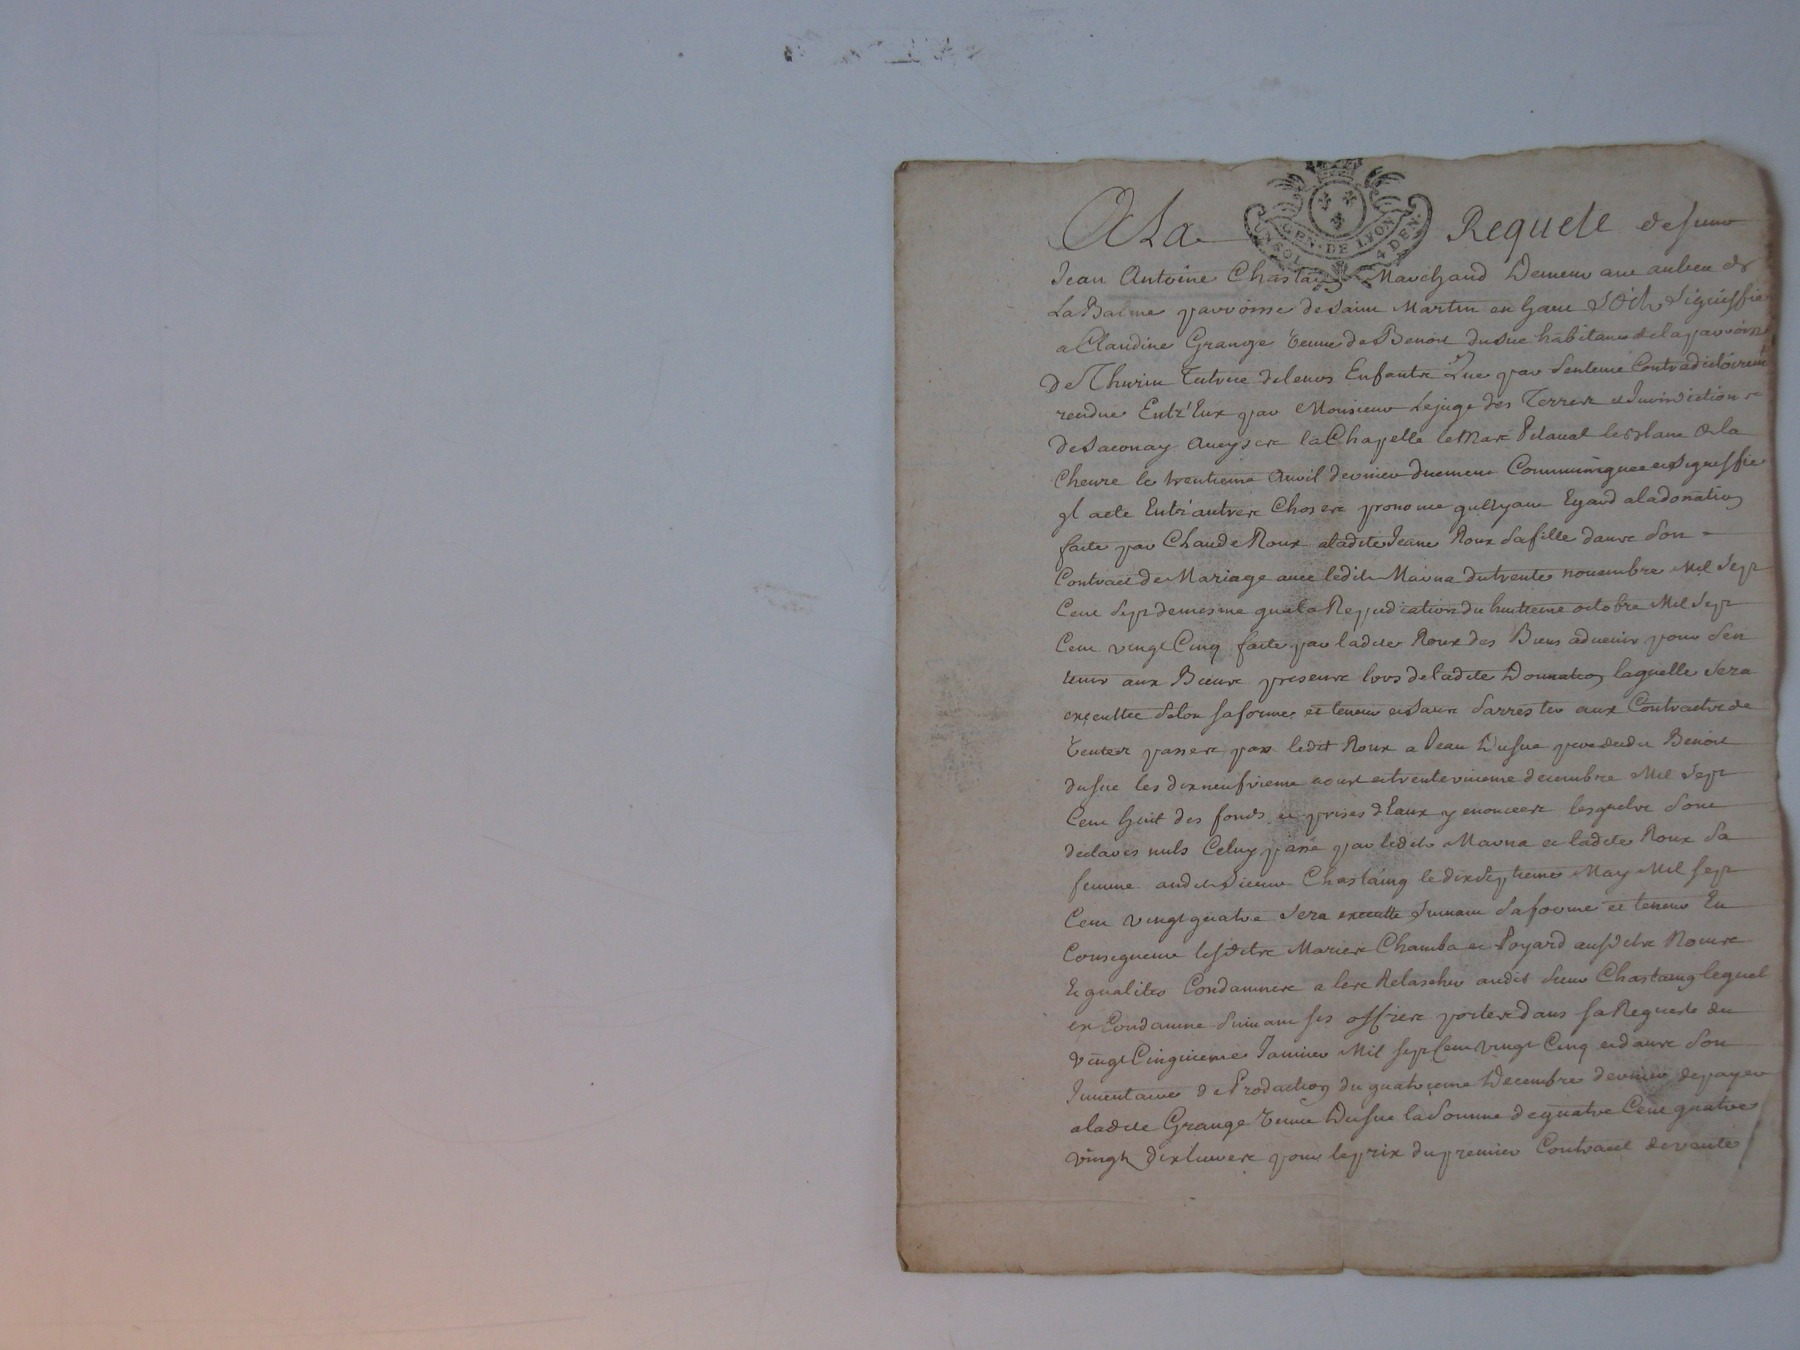 A La Requete de sieur
GEN. DE LYON
4 DEN.
Jean Antoine Chastaing Marchand Demeurant au lieu de
La Balme parroisse de Saint Martin en haut soit signiffié
a Claudine Grange veuve de Benoit Dusue habitante de la parroisse
de Thurin Tutrice de leurs Enfants que par Sentence Contradictoirement
rendue Entr'Eux par Monsieur Le juge des Terres et Jurisdiction
de Saconay Aveyses la Chapelle le Mas et la
le trentieme Avril dernier duement Communiquee et signiffie
il acte Entr'autres Choses prononcé quayant Egard a la donation
faite par Claude Roux a ladite Jeanne Roux sa fille dans son
Contract de Mariage avec ledit Marna du trente novembre Mil Sept
Cent Sept demesme qua la Repudiation du huitieme octobre Mil Sept
Cent vingt Cinq faite par ladite Roux des Biens advenir pour sen
tenir aux Biens presents lors de ladite Donnation laquelle sera
executtée selon sa forme et teneur et sans sarrester aux Contracts de
Ventes passés par ledit Roux a Jean Dusue pere dudit Benoit
dusue les dixneufvieme aout et trente unieme decembre Mil Sept
Cent huit des fonds et prises d'Eaux y enoncees lesquels sont
declarés nuls Celuy passé par ledit Marna et ladite Roux sa
femme audit Sieur Chastaing le dix Septieme May Mil sept
Cent vingt quatre sera executté suivant sa forme et teneur En
Consequence lesdits Mariés Chamba et Poyard ausdits Noms
Et qualites Condamnes a les Relascher audit sieur Chastaing lequel
est Condamné suivant ses offres portes dans sa Requeste du
vingt Cinquieme Janvier Mil sept Cent vingt Cinq et dans son
Inventaire de Production du quatrieme Decembre dernier de payer
a ladite Grange veuve Dusue la Somme de quatre Cent quatre
vingt dix livres pour le prix du premier Contract de vente